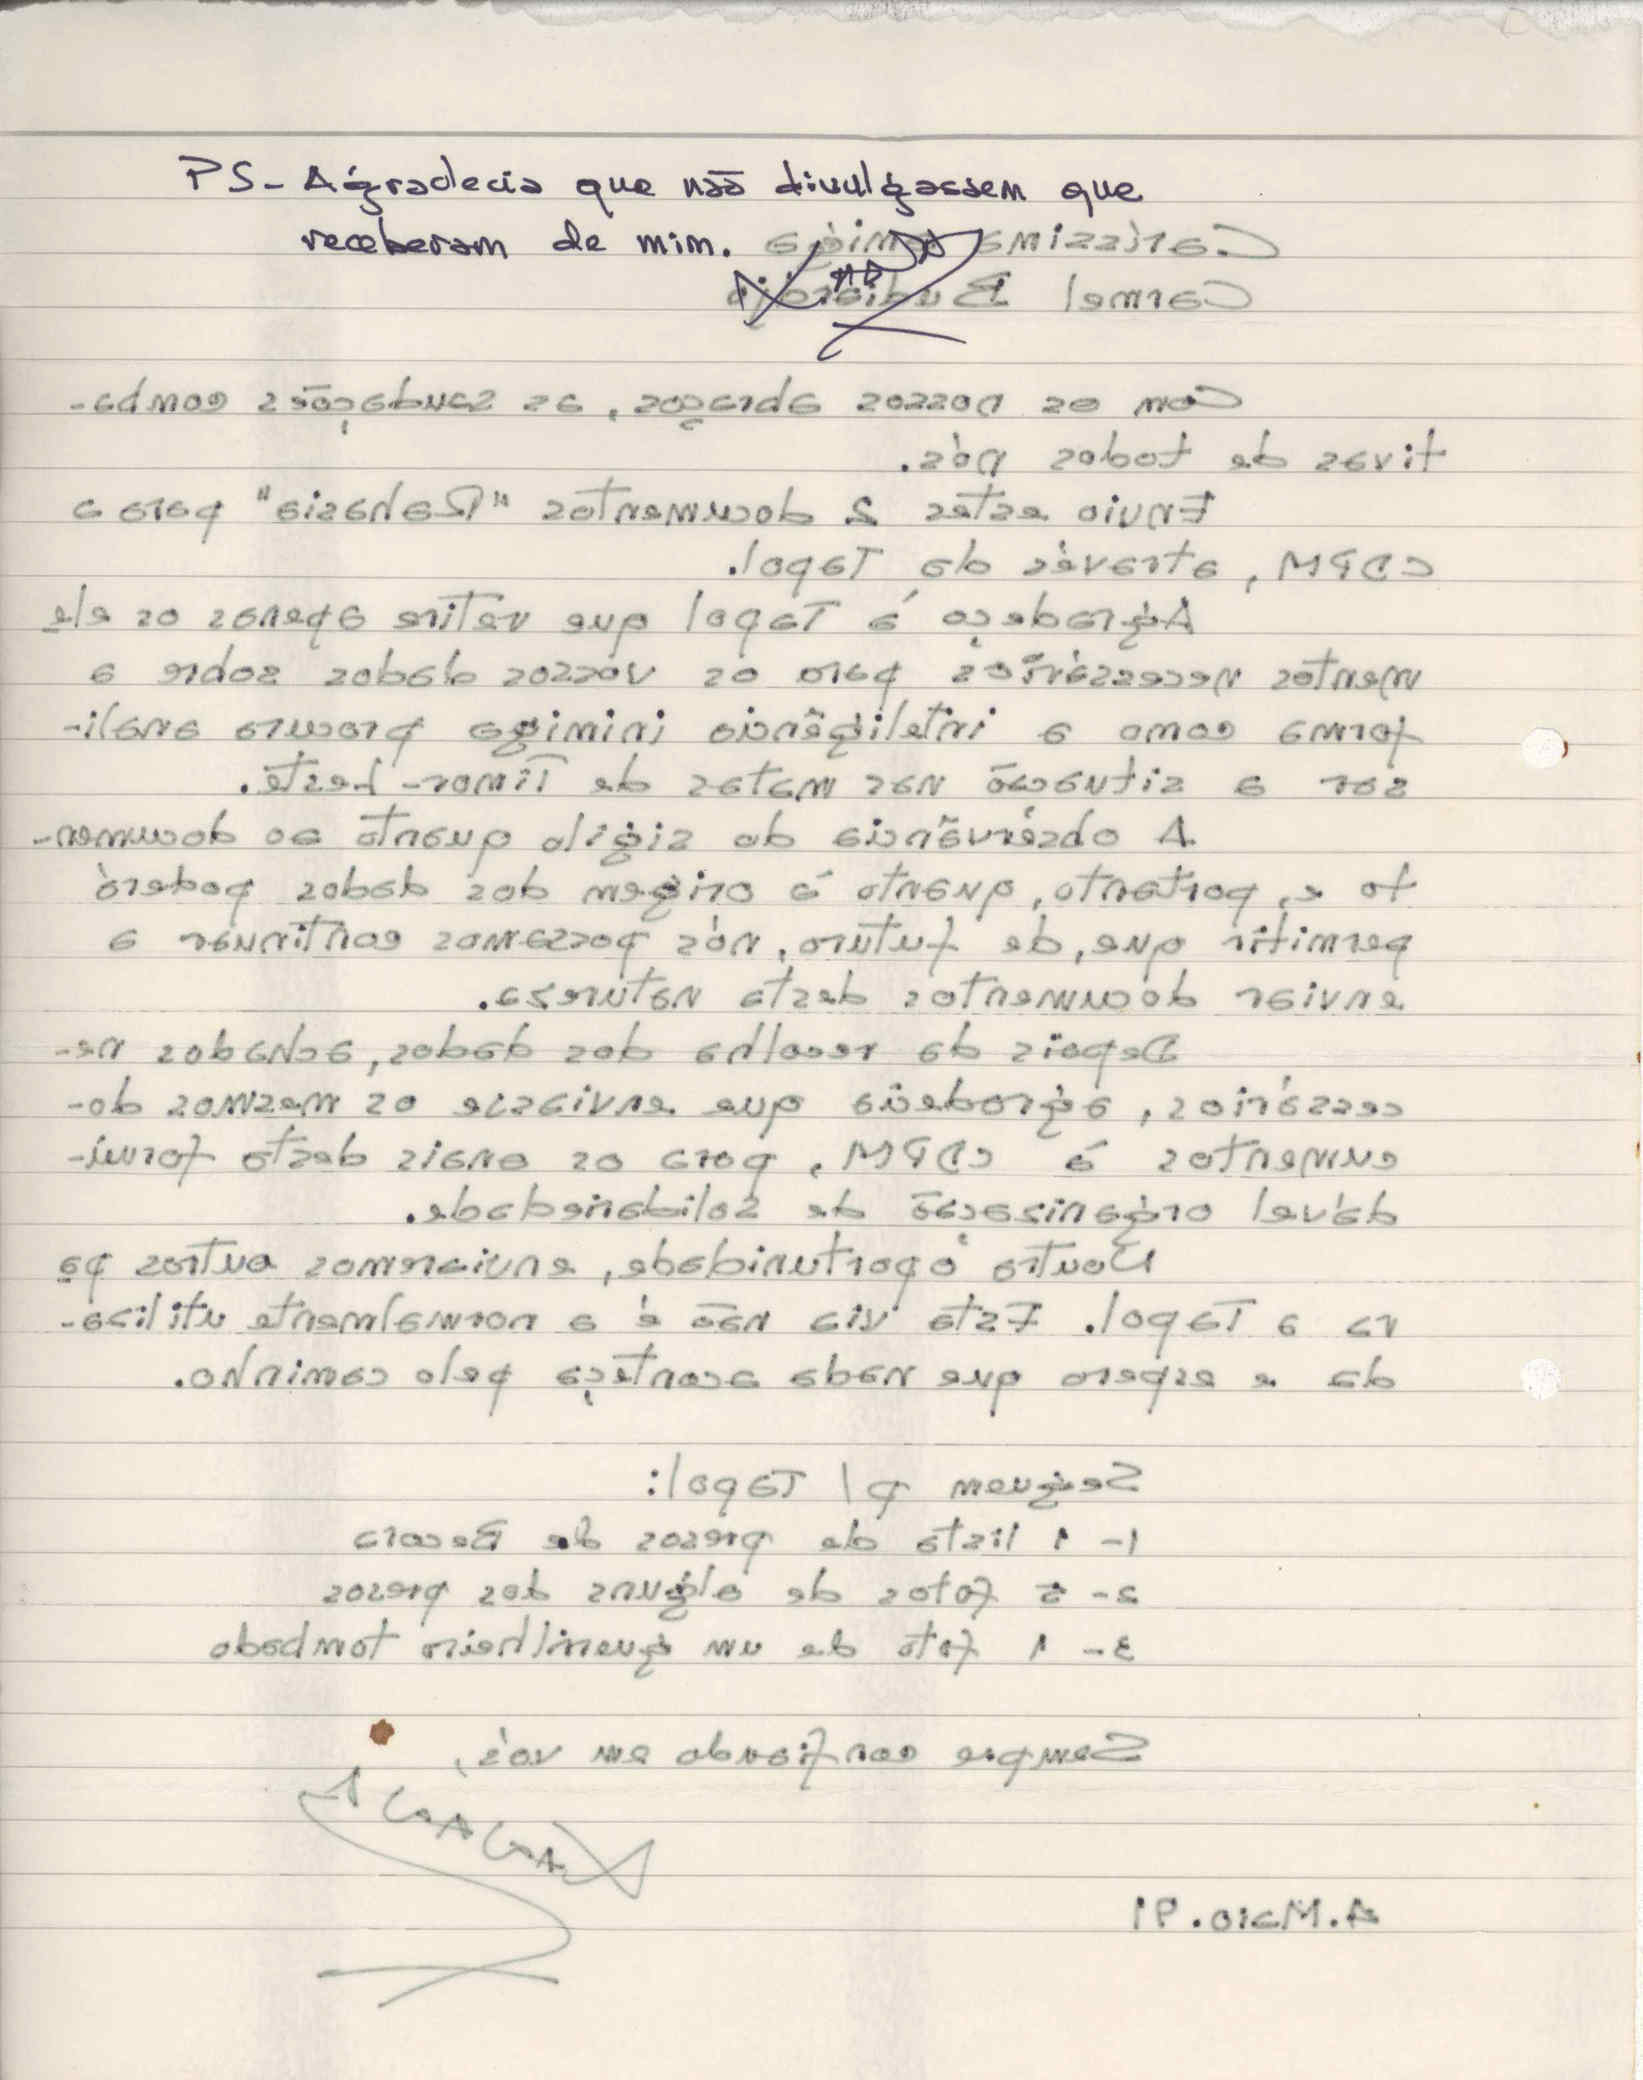 PS- Agradecia que não divulgassem que
receberam de mim.
Caríssima amiga
Carmel Budiardjo
Com os nossos abraços, as saudações comba-
tivas de todos nós.
Envio estes 2 documentos "Rahasia" para a
CDPM, através da Tapol.
Agradeço à Tapol que retire apenas os ele
mentos necessários para os vossos dados sobre a
forma como a inteligência inimiga procura anali-
sar a situação nas matas de Timor-Leste.
A observância do sigilo quanto ao documen-
to e, portanto, quanto à origem dos dados poderá
permitir que, de futuro, nós possamos continuar a
enviar documentos desta natureza.
Depois da recolha dos dados, achados ne-
cessários, agradecia que enviasse os mesmos do-
cumentos à CDPM, para os anais desta formi-
dável organização de solidariedade.
Noutra oportunidade, enviaremos outros pa
ra a Tapol. Esta via não é a normalmente utiliza-
da e espero que nada aconteça pelo caminho.
Seguem p/ Tapol:
1- 1 lista de presos de Becora
2- 5 fotos de alguns dos presos
3- 1 foto de um guerrilheiro tombado
Sempre confiando em vós,
4.Maio.91